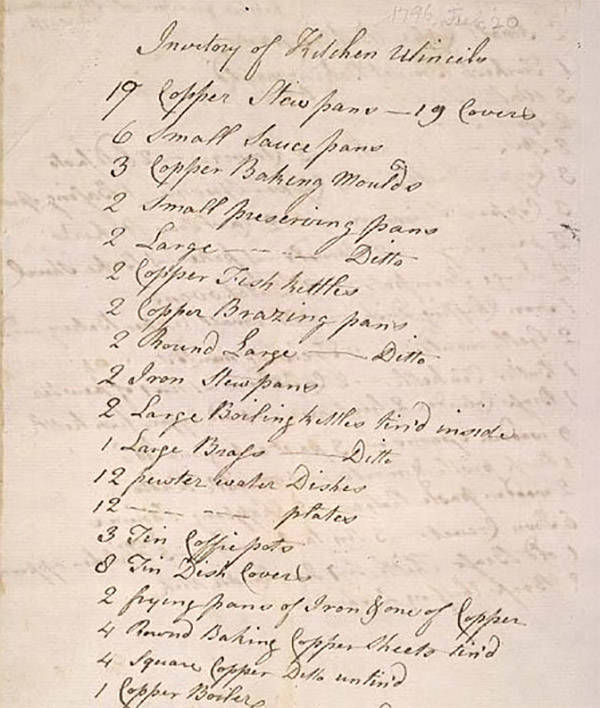 1796, Feb 20
Inventory of Kitchen Utincils
19 Copper Stewpans — 19 Covers
6 Small Sauce pans
3 Copper Baking Moulds
2 Small preserving pans
2 Large — — — Ditto
2 Copper Fish kettles
2 Copper Brazing pans
2 Round Large — Ditto
2 Iron Stewpans
2 Large Boiling kettles tin'd inside
1 Large Brass — Ditto
12 pewter water Dishes
12 — — — plates
3 Tin Coffie pots
8 Tin Dish Covers
2 frying pans of Iron & one of Copper
4 Round Baking Copper Sheets tin'd
4 Square Copper Ditto untin'd
1 Copper Boiler